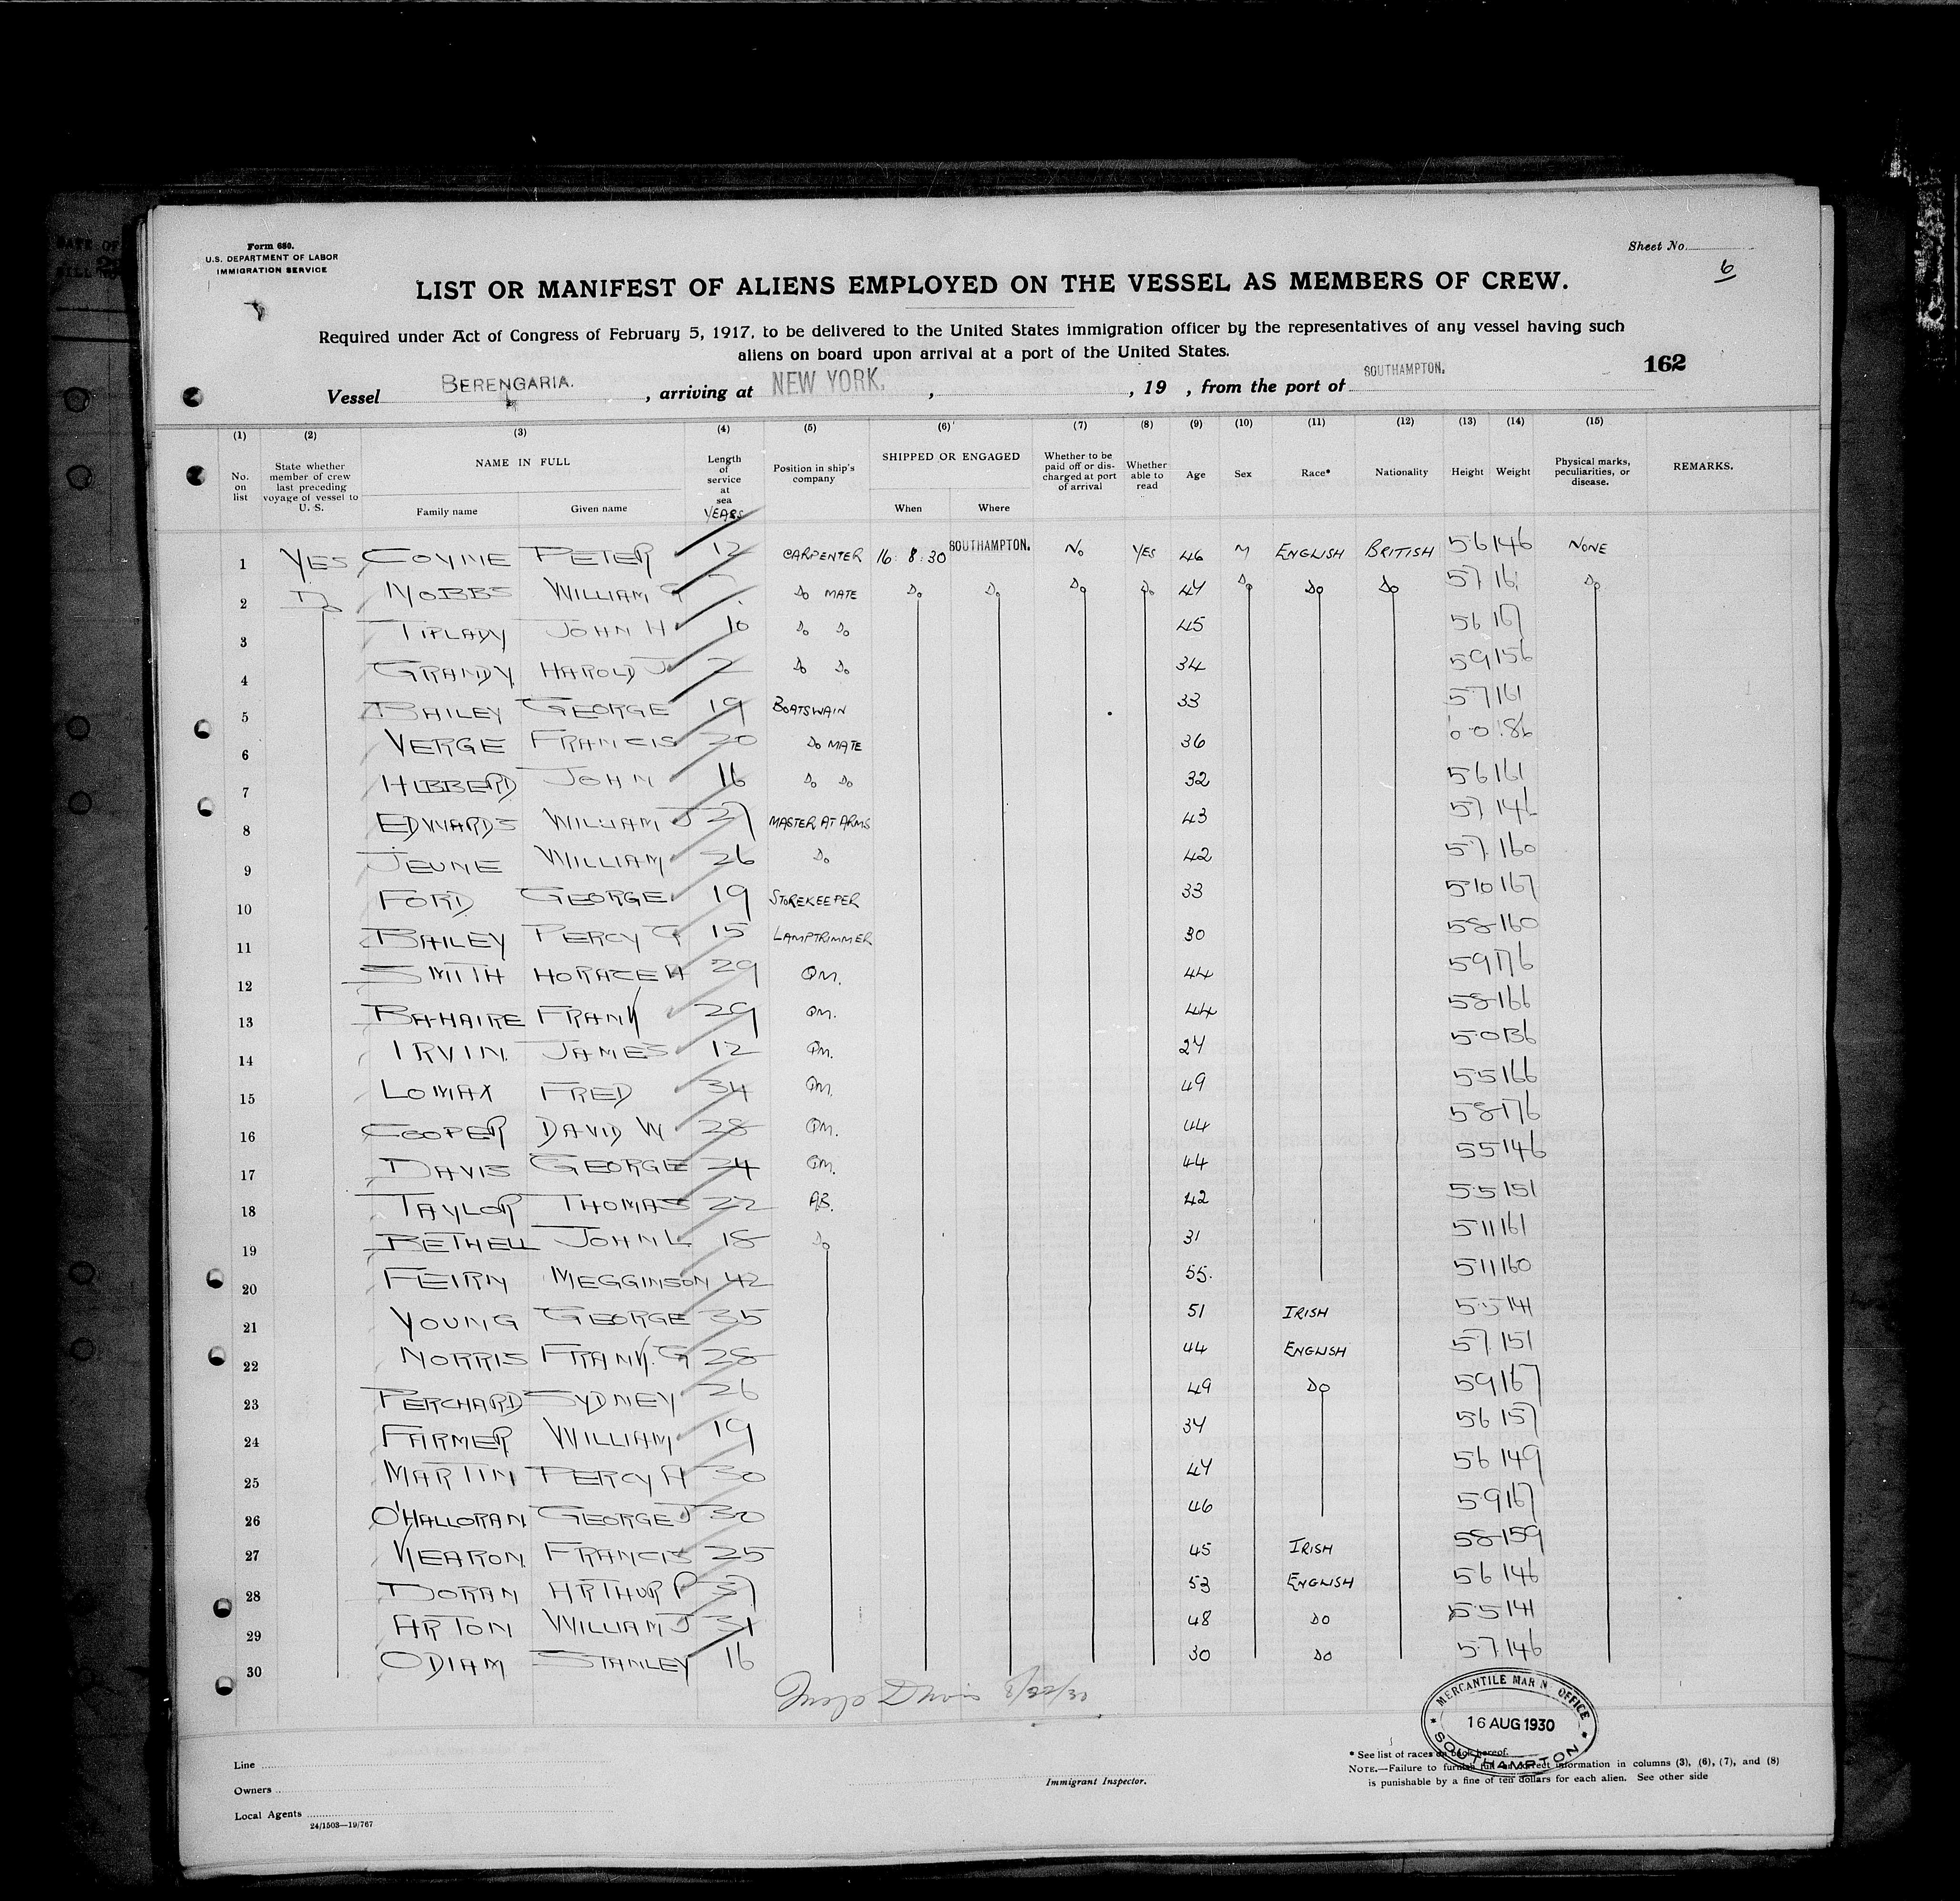 Form 680.
U.S. DEPARTMENT OF LABOR
IMMIGRATION SERVICE
Sheet No.
6
LIST OR MANIFEST OF ALIENS EMPLOYED ON THE VESSEL AS MEMBERS OF CREW.
Required under Act of Congress of February 5, 1917, to be delivered to the United States immigration officer by the representatives of any vessel having such
aliens on board upon arrival at a port of the United States.
162
Vessel BERENGARIA. , arriving at NEW YORK, , , 19 , from the port of SOUTHAMPTON.
(1) (2) (3) (4) (5) (6) (7) (8) (9) (10) (11) (12) (13) (14) (15)
No. on list State whether member of crew last preceding voyage of vessel to U.S. NAME IN FULL Length of service at sea Position in ship's company SHIPPED OR ENGAGED Whether to be paid off or discharged at port of arrival Whether able to read Age Sex Race* Nationality Height Weight Physical marks, peculiarities, or disease. REMARKS.
Family name Given name YEARS When Where
1 YES COYNE PETER 12 CARPENTER 16.8.30 SOUTHAMPTON. No YES 46 M ENGLISH BRITISH 56 146 NONE
2 Do NOBBS WILLIAM G Do MATE Do Do Do Do 47 Do Do Do 57 Do
3 TIPLADY JOHN H 10 Do Do 45 56 167
4 GRANDY HAROLD J 2 Do Do 34 59 156
5 BAILEY GEORGE 19 BOATSWAIN 33 57 161
6 VERGE FRANCIS 20 Do MATE 36 6-0 186
7 HIBBERD JOHN 16 Do Do 32 56 161
8 EDWARDS WILLIAM J 27 MASTER AT ARMS 43 57 146
9 JEUNE WILLIAM 26 Do 42 57 160
10 FORD GEORGE 19 STOREKEEPER 33 510 167
11 BAILEY PERCY G 15 LAMPTRIMMER 30 58 160
12 SMITH HORACE H 29 QM. 44 59 176
13 BAHAIRE FRANK 29 QM. 44 58 166
14 IRVIN JAMES 12 QM. 27 50 136
15 LOMAX FRED 34 QM. 49 55 166
16 COOPER DAVID W 28 QM. 44 58 176
17 DAVIS GEORGE 24 QM. 44 55 146
18 TAYLOR THOMAS 22 AB. 42 55 151
19 BETHELL JOHN L 18 Do 31 511 161
20 FEIRN MEGGINSON 42 55. 511 160
21 YOUNG GEORGE 35 51 IRISH 55 141
22 NORRIS FRANK. G 28 44 ENGLISH 57 151
23 PERCHARD SYDNEY 26 49 Do 59 167
24 FARMER WILLIAM 19 34 56 157
25 MARTIN PERCY H 30 47 56 149
26 O'HALLORAN GEORGE J 30 46 59 167
27 KEARON FRANCIS 25 45 IRISH 58 159
28 DORAN ARTHUR P 37 53 ENGLISH 56 146
29 ARTON WILLIAM J 31 48 DO 55 141
30 ODIAM STANLEY 16 30 DO 57 146
8/22/30
MERCANTILE MARINE OFFICE
16 AUG 1930
SOUTHAMPTON
Line
Owners
Local Agents
24/1503—19/767
Immigrant Inspector.
* See list of races on back hereof.
NOTE.—Failure to furnish full or correct information in columns (3), (6), (7), and (8)
is punishable by a fine of ten dollars for each alien. See other side